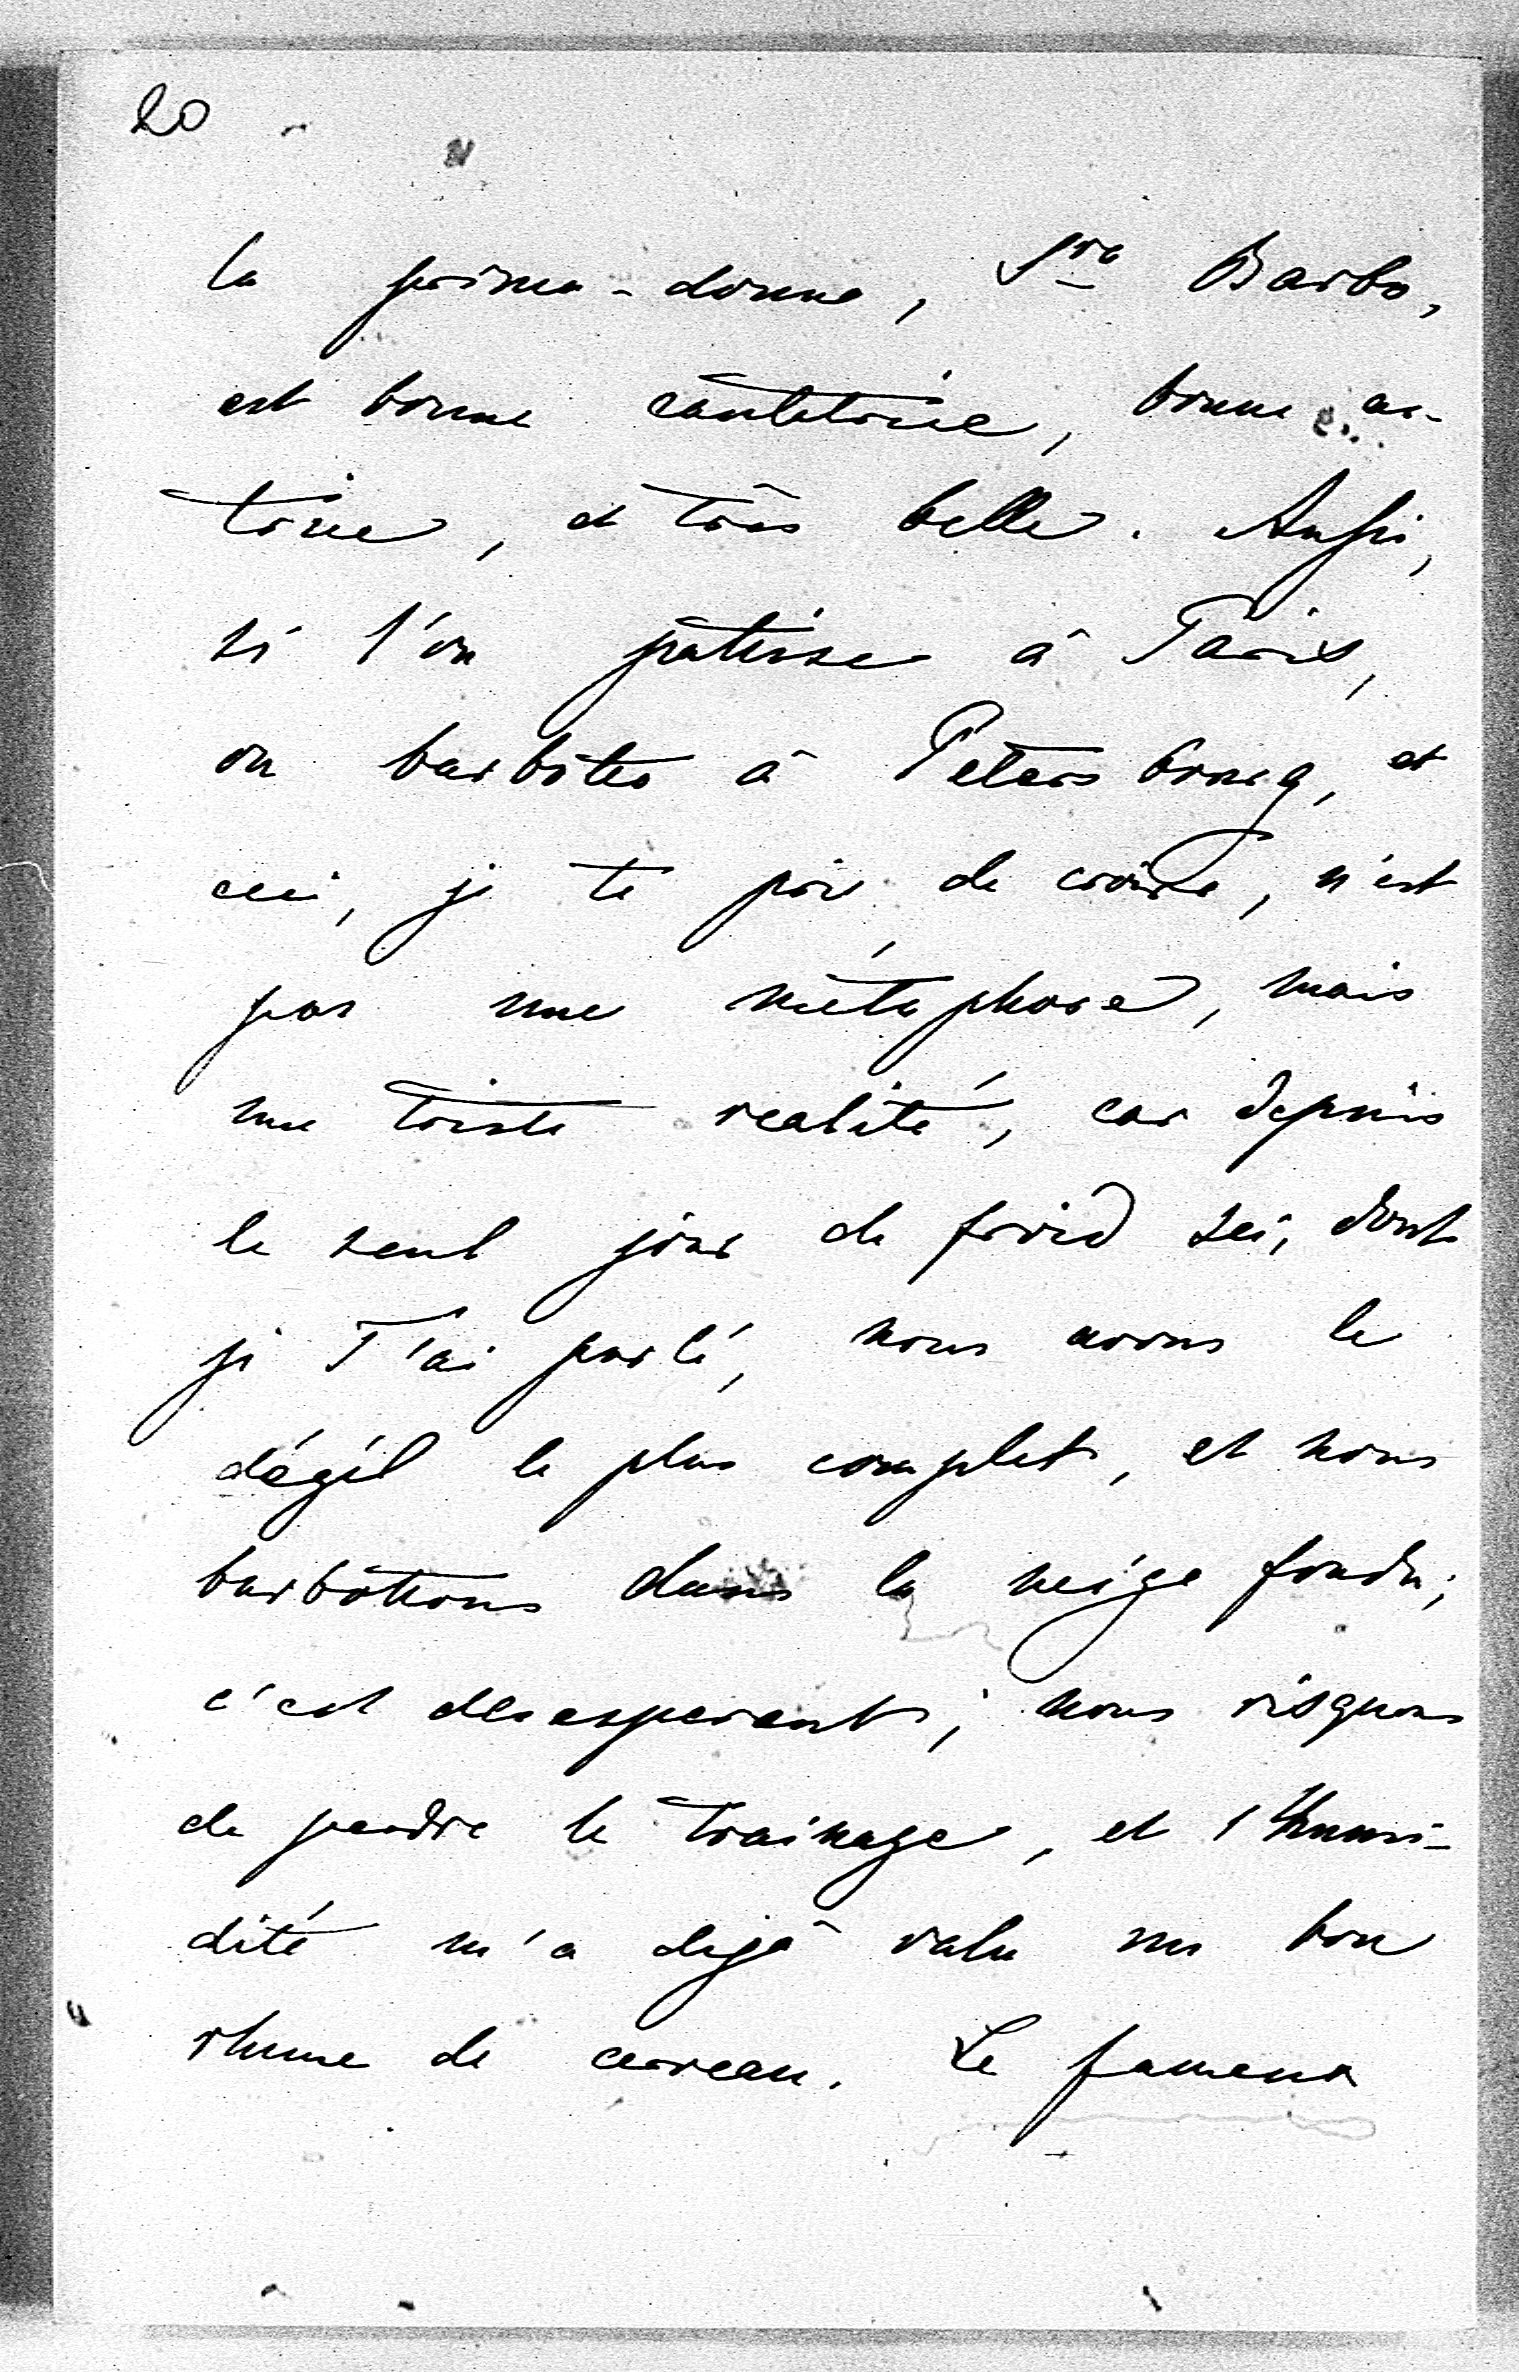 20
la prima-donna, Sra Barbo,
est bonne cantatrice, bonne ac-
trice, et très belle. Aussi,
si l'on patisse à Paris,
on barbôte à Petersbourg, et
ceci, je te prie de croire, n'est
pas une métaphore, mais
une triste realité, car depuis
le seul jour de froid sec, dont
je t'ai parlé, nous avons le
dégél le plus complet, et nous
barbôtons dans la neige fondu;
c'est desesperant; nous risquons
de perdre le trainage, et l'humi-
dité m'a dejà valu un bon
rhume de cerveau. Le fameux